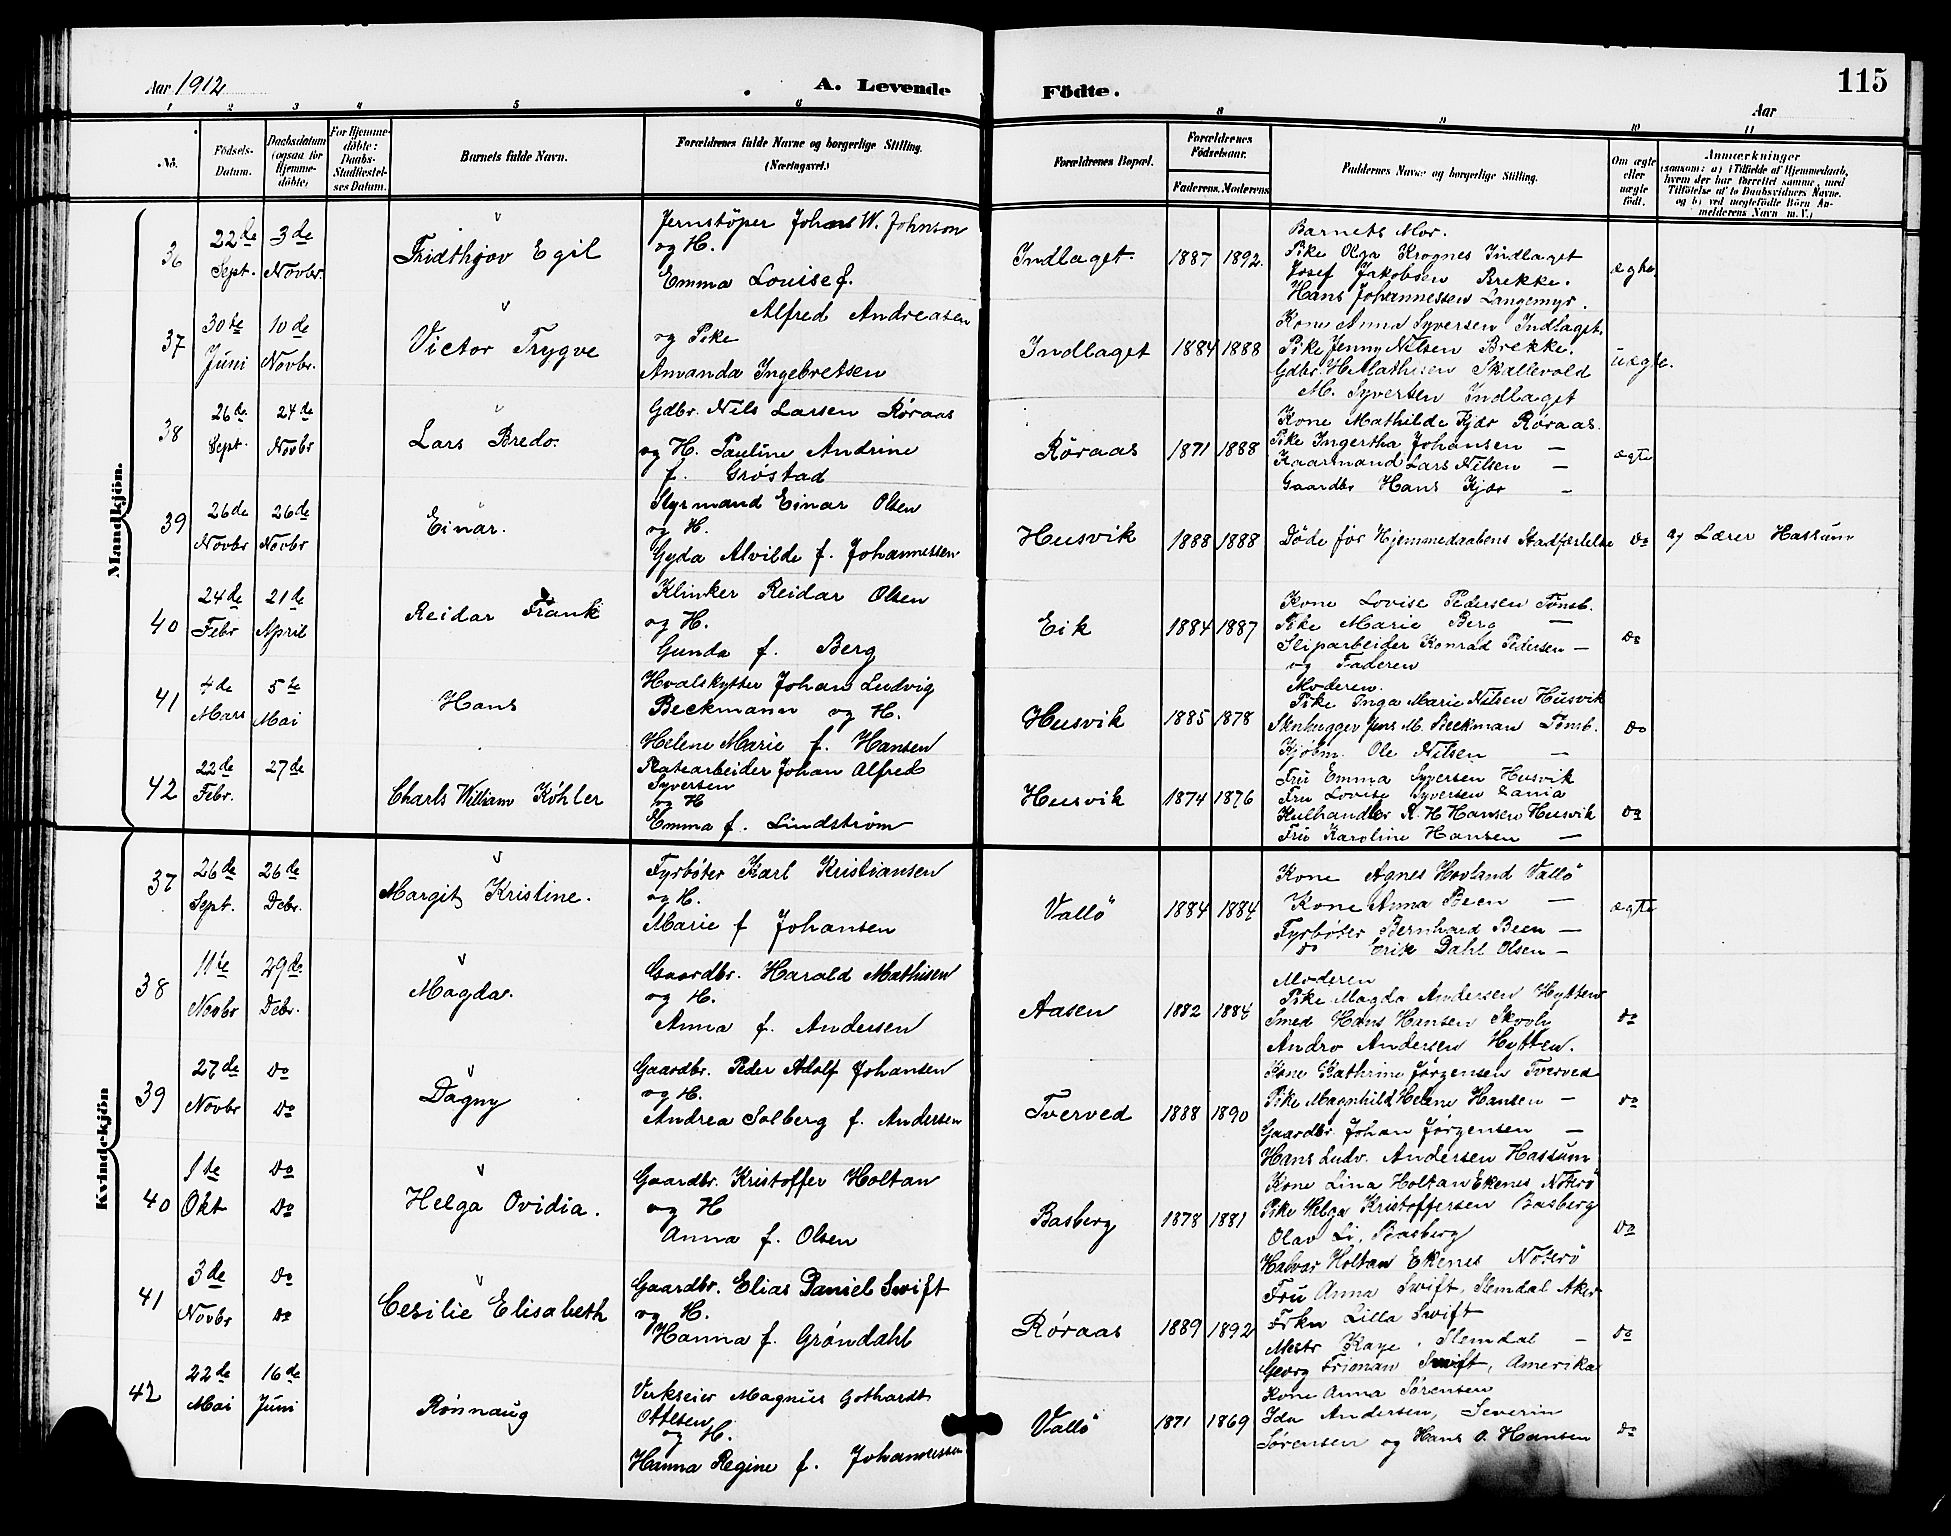 Aar 1912
A. Levende
Födte.
115
Aar
1 2 3 4 5 6 8 9 10 11
No.
Födsels-
Datum.
Daabsdatum
(ogsaa for
Hjemme-
döbte)
For Hjemme-
döbte:
Daabs-
Stadfæstel-
ses Datum.
Barnets fulde Navn.
Forældrenes fulde Navne og borgerlige Stilling.
(Næringsvei.)
Forældrenes Bopæl.
Forældrenes
Födselsaar.
Faderens. Moderens
Faddernes Navne og borgerlige Stilling.
Om ægte
eller
uægte
födt.
Anmærkninger
(saasom: a) i Tilfælde af Hjemmedaab,
hvem der har forrettet samme, med
Tilföielse af to Daabsvidners Navne.
og b) ved uægtefödte Börn An-
melderens Navn m. V.)
Mandkjön.
36
22de
Sept.
3de
Novbr.
Fridthjov Egil
Jernstöper Johans W. Johnson
og H.
Emma Louise f.
Indlaget
1887
1892.
Barnets Mor.
Pike Olga Krognes Indlaget
Josef Jakobsen Brekke.
Hans Johannessen Langemyr.
ægte
37
30te
Juni
10de
Novbr.
Victor Trygve
Alfred Andreasen
og Pike
Amanda Ingebretsen
Indlaget
1884
1888
Kone Anna Syversen Indlaget
Pike Jenny Nilsen Brekke.
Gdbr. H. Mathisen Skallevold
M. Syversen Indlaget
uægte.
38
26de
Sept.
24de
Novbr
Lars Bredo.
Gdbr. Nils Larsen Røraas
og H. Pauline Andrine
f. Grøstad
Røraas
1871
1888
Kone Mathilde Kjær Røraas.
Pike Ingertha Johansen —
Kaarmand Lars Nilsen —
Gaardbr Hans Kjær —
ægte
39
26de
Novbr
26de
Novbr
Einar.
Styrmand Einar Olsen
og H.
Gyda Alvilde f. Johannessen
Husvik
1888
1888
Døde før Hjemmedaabens Stadfæstelse
do
a) Lærer Hassum
40
24de
Febr
21de
April
Reidar Frank
Klinker Reidar Olsen
og H.
Gunda f. Berg
Eik
1884
1887
Kone Lovise Pedersen Tønsb.
Pike Marie Berg —
Sliparbeider Konrad Pedersen —
og Faderen
do
41
4de
Mars
5te
Mai
Hans
Hvalskytter Johan Ludvig
Beckmann og H.
Helene Marie f. Hansen
Husvik
1885
1878
Moderen.
Pike Inga Marie Nilsen Husvik
Stenhugger Jens M. Beckman Tønsb.
Kjøbm. Ole Nilsen —
do
42
22de
Febr.
27de
Charls William Köhler
Platearbeider Johan Alfred
Syversen
og H
Emma f. Lindstrøm
Husvik
1874
1876
Fru Emma Syversen Husvik
Fru Lovise Syversen
Kulhandler R. H Hansen Husvik
Fru Karoline Hansen —
do
Kvindekjön
37
26de
Sept.
26de
Debr.
Margit Kristine.
Fyrbøter Karl Kristiansen
og H.
Marie f Johansen
Vallö
1884
1884
Kone Agnes Hovland Vallö
Kone Anna Been —
Fyrbøter Bernhard Been —
do Erik Dahl Olsen —
ægte
38
11te
Novbr
29de
Debr.
Magda.
Gaardbr. Harald Mathisen
og H.
Anna f. Andersen
Aasen
1882
1884
Moderen
Pike Magda Andersen Hytten
Smed Hans Hansen Skovli
Andro Andersen Hytten.
do
39
27de
Novbr
do
do
Dagny
Gaardbr. Peder Adolf Johansen
og H.
Andrea Solberg f. Andersen
Tverved
1888
1890
Kone Kathrine Jørgensen Tverved
Pike Magnhild Helene Hansen —
Gaardbr. Johan Jørgensen —
Hans Ludv. Andersen Hassum
do
40
1ste
Okt
do
do
Helga Ovidia.
Gaardbr. Kristoffer Holtan
og H
Anna f. Olsen
Basberg
1878
1881
Kone Lina Holtan Ekenes Nøterö
Pike Helga Kristoffersen Basberg
Olav Li, Basberg
Halvor Holtan Ekenes Nøterö
do
41
3de
Novbr
do
do
Cesilie Elisabeth
Gaardbr. Elias Daniel Swift
og H.
Hanna f. Grøndahl
Røraas
1889
1892
Fru Anna Swift, Slemdal Aker
Frkn Lilla Swift
Mestr Kaye, Slemdal —
Georg Frioman Swift, Amerika
do
42
22de
Mai
16de
Juni
Rønnaug
Verkseier Magnus Gothardt
Ottesen
og H.
Hanna Regine f. Johannessen
Vallö
1871
1869
Kone Anna Sørensen
Ida Andersen, Severin
Sørensen og Hans O. Hansen
do